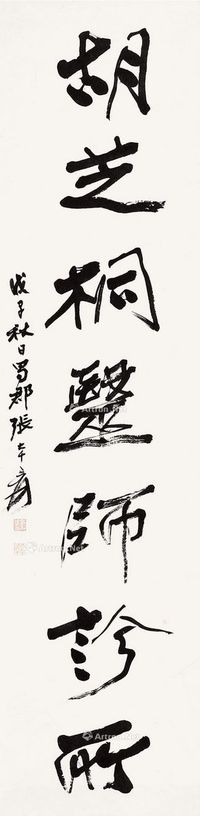 胡芝桐醫師診所
戊子秋日蜀郡張大千爰